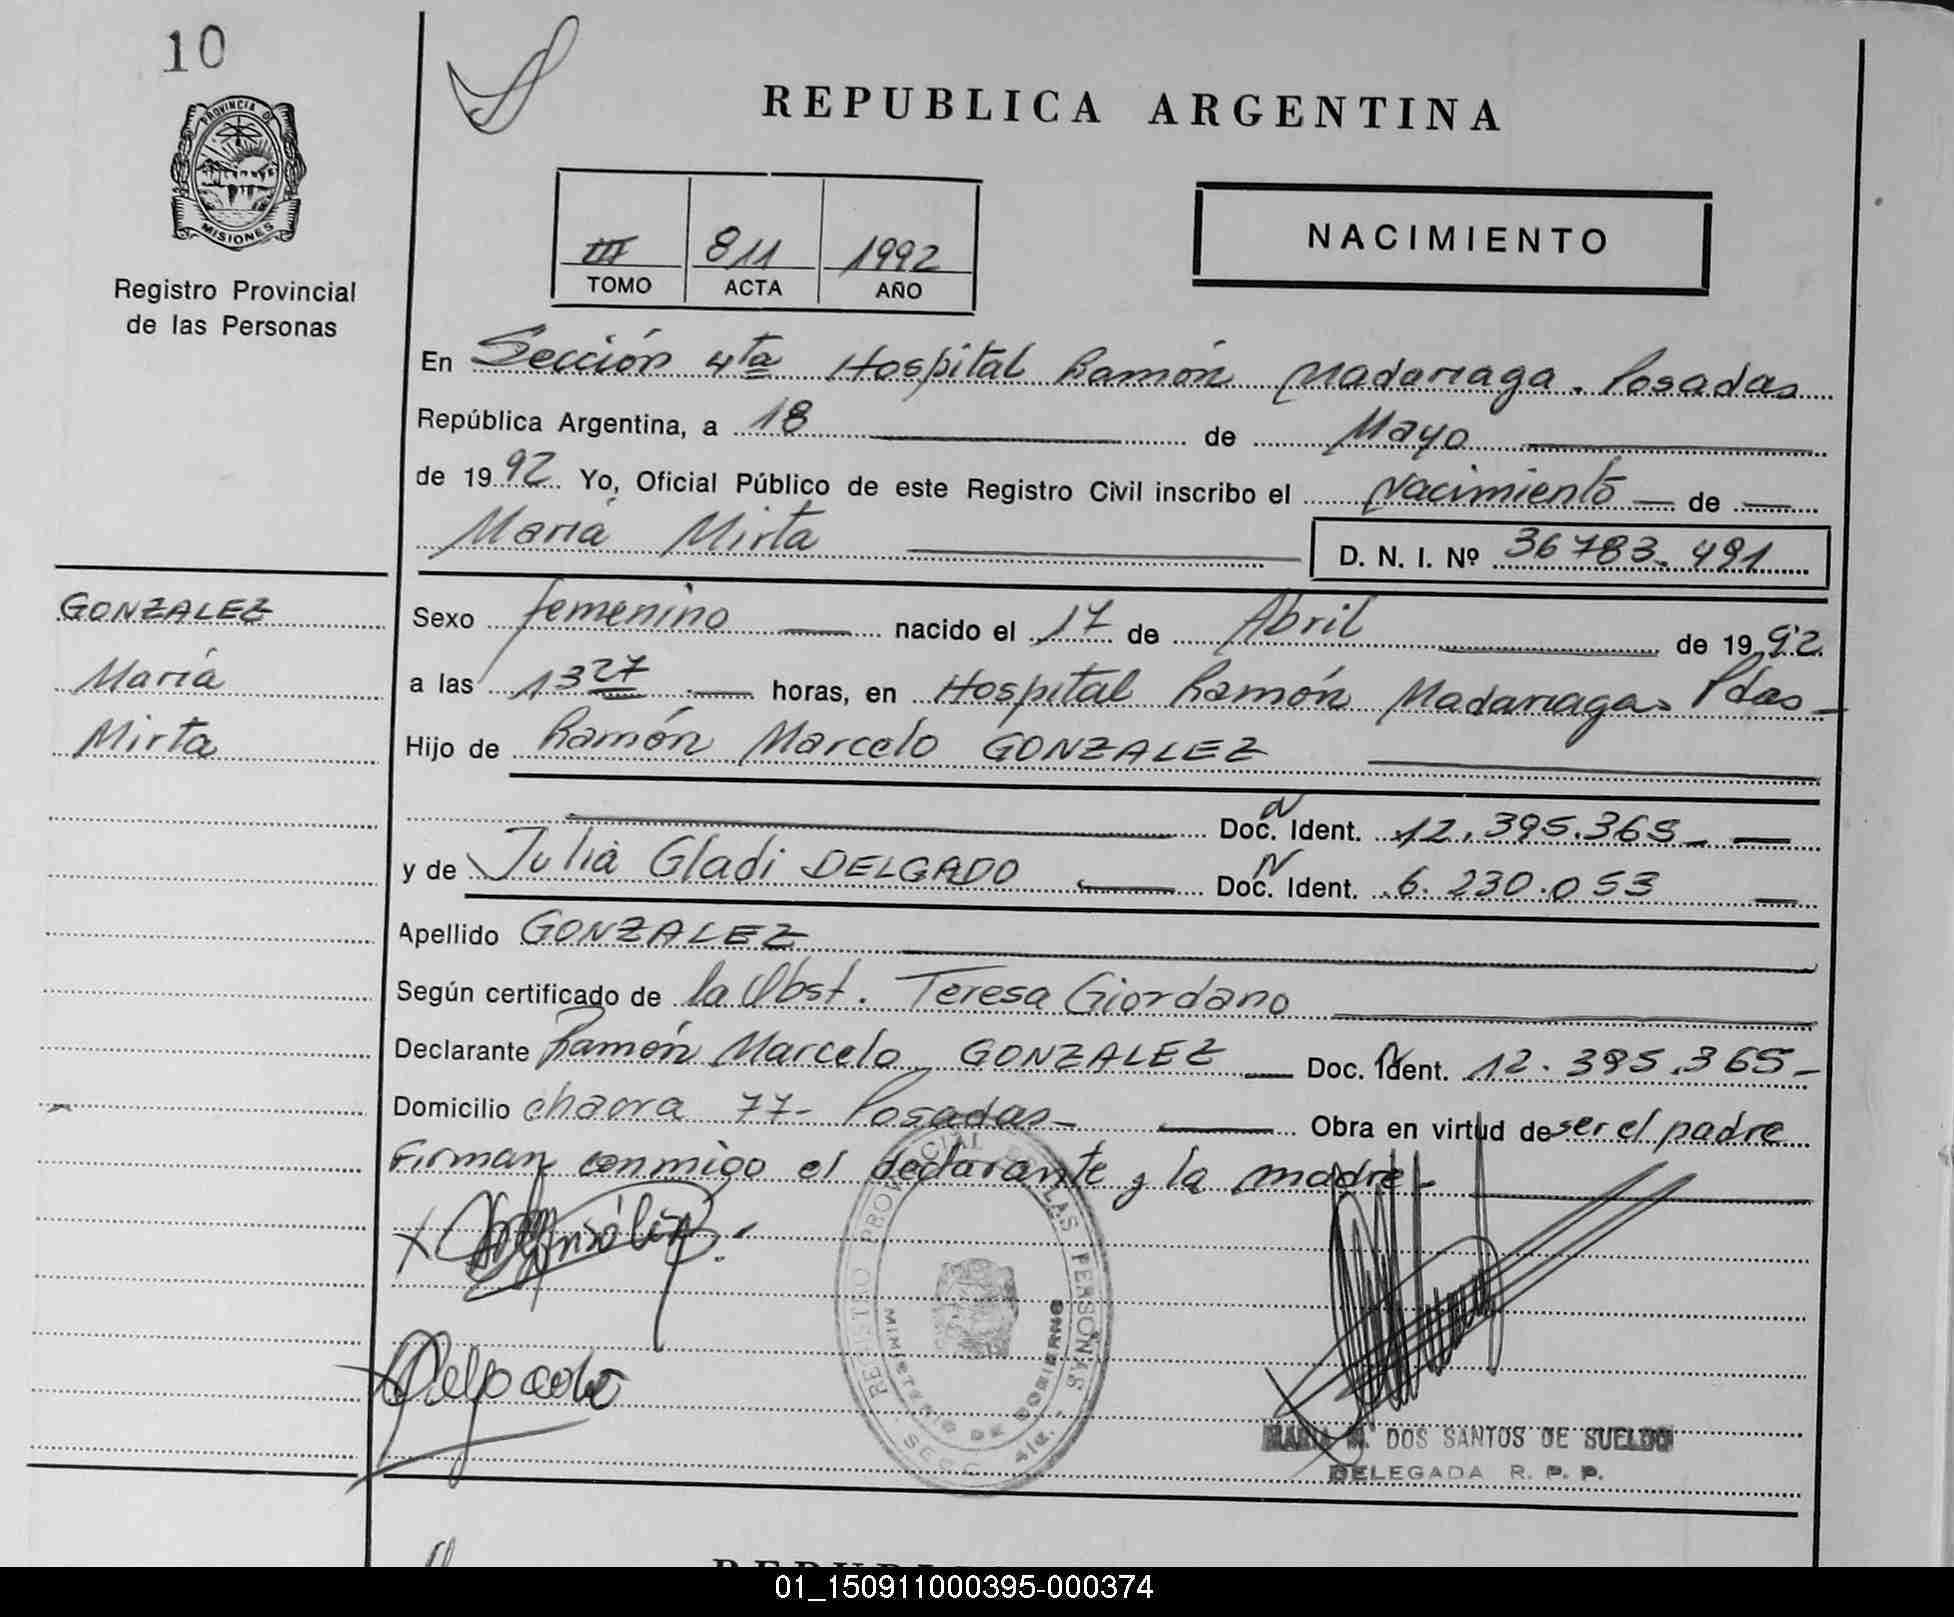 10
PROVINCIA DE
MISIONES
Registro Provincial
de las Personas
REPUBLICA ARGENTINA
III 811 1992
TOMO ACTA AÑO
NACIMIENTO
En Sección 4ta Hospital Ramón Madariaga. Posadas
República Argentina, a 18 de Mayo
de 1992 Yo, Oficial Público de este Registro Civil inscribo el Nacimiento de
María Mirta D. N. I. Nº 36783.491
GONZALEZ
María
Mirta
Sexo femenino nacido el 17 de Abril de 1992
a las 13 27 horas, en Hospital Ramón Madariaga. Pdas
Hijo de Ramón Marcelo GONZALEZ
Doc. N Ident. 12.395.365
y de Julia Gladi DELGADO Doc. N Ident. 6.230.053
Apellido GONZALEZ
Según certificado de la Obst. Teresa Giordano
Declarante Ramón Marcelo GONZALEZ Doc. N Ident. 12.395.365
Domicilio chacra 77- Posadas Obra en virtud de ser el padre
Firman conmigo el declarante y la madre
Delgado
REGISTRO PROVINCIAL DE LAS PERSONAS
MINISTERIO DE GOBIERNO
SECC. 4ta.
DOS SANTOS DE SUELDO
DELEGADA R. P. P.
01_150911000395-000374